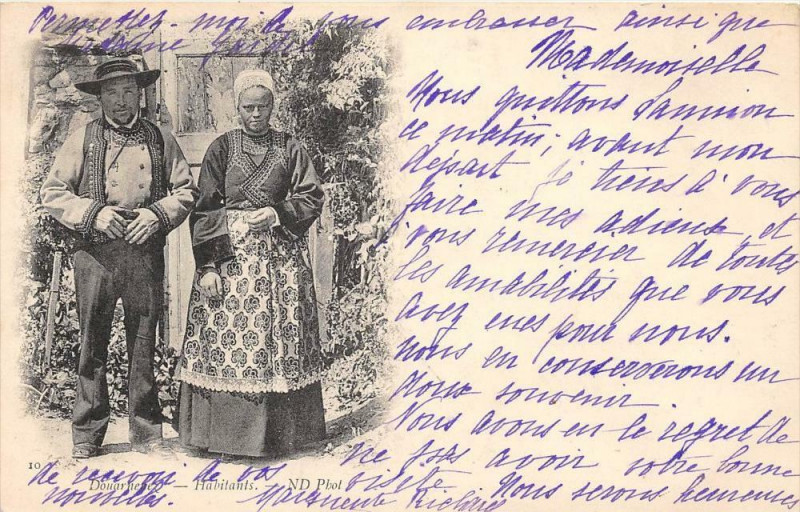 Mademoiselle
Nous quittons Lannion
ce matin; avant mon
départ je tiens à vous
faire mes adieux et
vous remercier de toutes
les amabilités que vous
avez eues pour nous.
Nous en conserverons un
doux souvenir.
Nous avons eu le regret de
ne pas avoir votre bonne
visite. Nous serons heureuses
de recevoir de vos
nouvelles. Marguerite
Permettez-moi de vous embrasser ainsi que
Madame
10 Douarnenez. — Habitants. — ND Phot